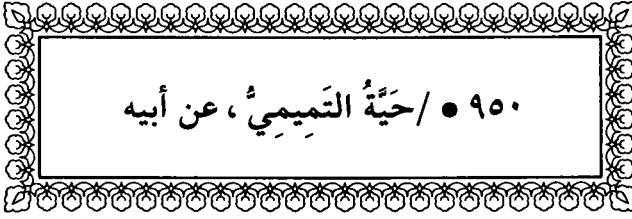 ٩٥٠ • /حَيَّةُ التَمِيمِيُّ ، عن أبيه